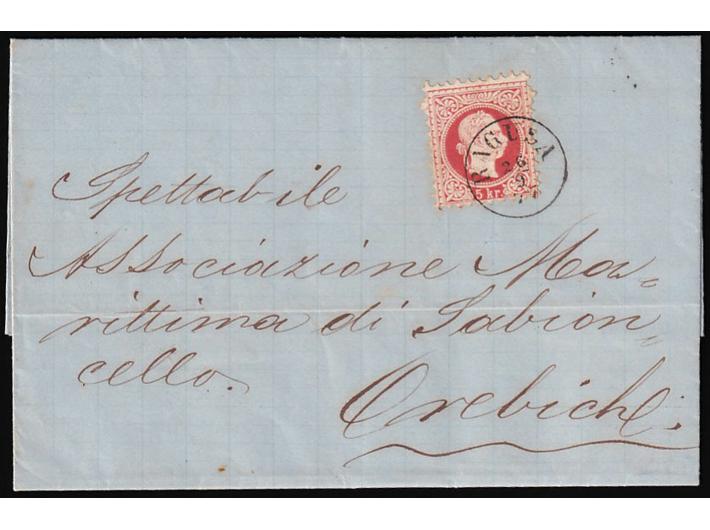 RAGUSA
26
9
77
5 kr.
Spettabile
Associazione Ma=
rittima di Sabion=
cello.
Orebich.